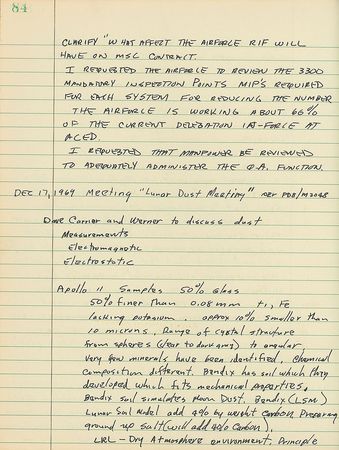 84
CLARIFY "WHAT AFFECT THE AIRFORCE RIF WILL
HAVE ON MSC CONTRACT.
I REQUESTED THE AIRFORCE TO REVIEW THE 3300
MANDATORY INSPECTION POINTS MIP'S REQUIRED
FOR EACH SYSTEM FOR REDUCING THE NUMBER
THE AIRFORCE IS WORKING ABOUT 66%
OF THE CURRENT DELEGATION
AT
ACED.
I REQUESTED THAT MANPOWER BE REVIEWED
TO ADEQUATELY ADMINISTER THE Q.A. FUNCTION.
DEC 17, 1969 Meeting "Lunar Dust Meeting"
Dave Carrier and Werner to discuss dust
Measurements
Electromagnetic
Electrostatic
Apollo 11 Samples 50% Glass
50% finer than 0.08 mm Ti, Fe
lacking potasium. approx 10% smaller than
10 microns. Range of crystal structure
from spheres (clear to dark amy) to angular.
Very few minerals have been identified. Chemical
composition different. Bendix has soil which they
developed which fits mechanical properties.
Bendix soil simulates Moon Dust. Bendix (LSM)
Lunar Soil Model add 4% by weight Carbon Preparing
ground up salt (will add 40% Carbon).
LRL - Dry Atmosphere environment. Principle